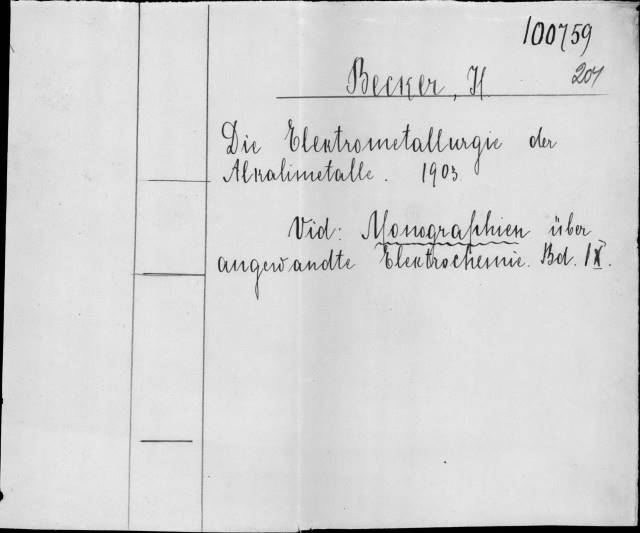 100759
Becker, H. 207
Die Elektrometallurgie der
Alkalimetalle. 1903.
Vid: Monographien über
angewandte Elektrochemie. Bd. IX.